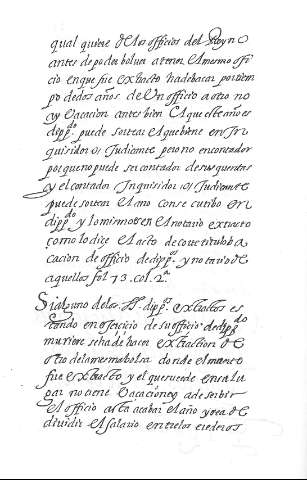 qual quiere de los officios del Reyno
antes de poder bolver a tener el mesmo offi
cio en que fue extracto ha de bacar por tiem
po de dos años. de Un officio a otro no
ay Vacacion antes bien el que este año es
dipp.do puede sortear el que biene en In
quisidor o Judicante pero no en contador
porque no puede ser contador de sus quentas
y el contador Inquisidor o Judicante
puede sortear el año consecutibo en
dipp.do y lo mismo es en el notario extracto
como lo dize el acto de cort. tit.
cacion de officio de dipp.os y notario de
aquellos fol 73. col. 2.a
Si alguno de los ss.res dipp.os extractos es
tando en exercicio de su officio de dipp.do
muriere se ha de hacer extraction de
otro de la mesma bolsa donde el muerto
fue extracto y el que sucede en su lu
gar no tiene Vacacion y ha de serbir
el officio asta acabar el año y sea de
dividir el salario entre los erederos